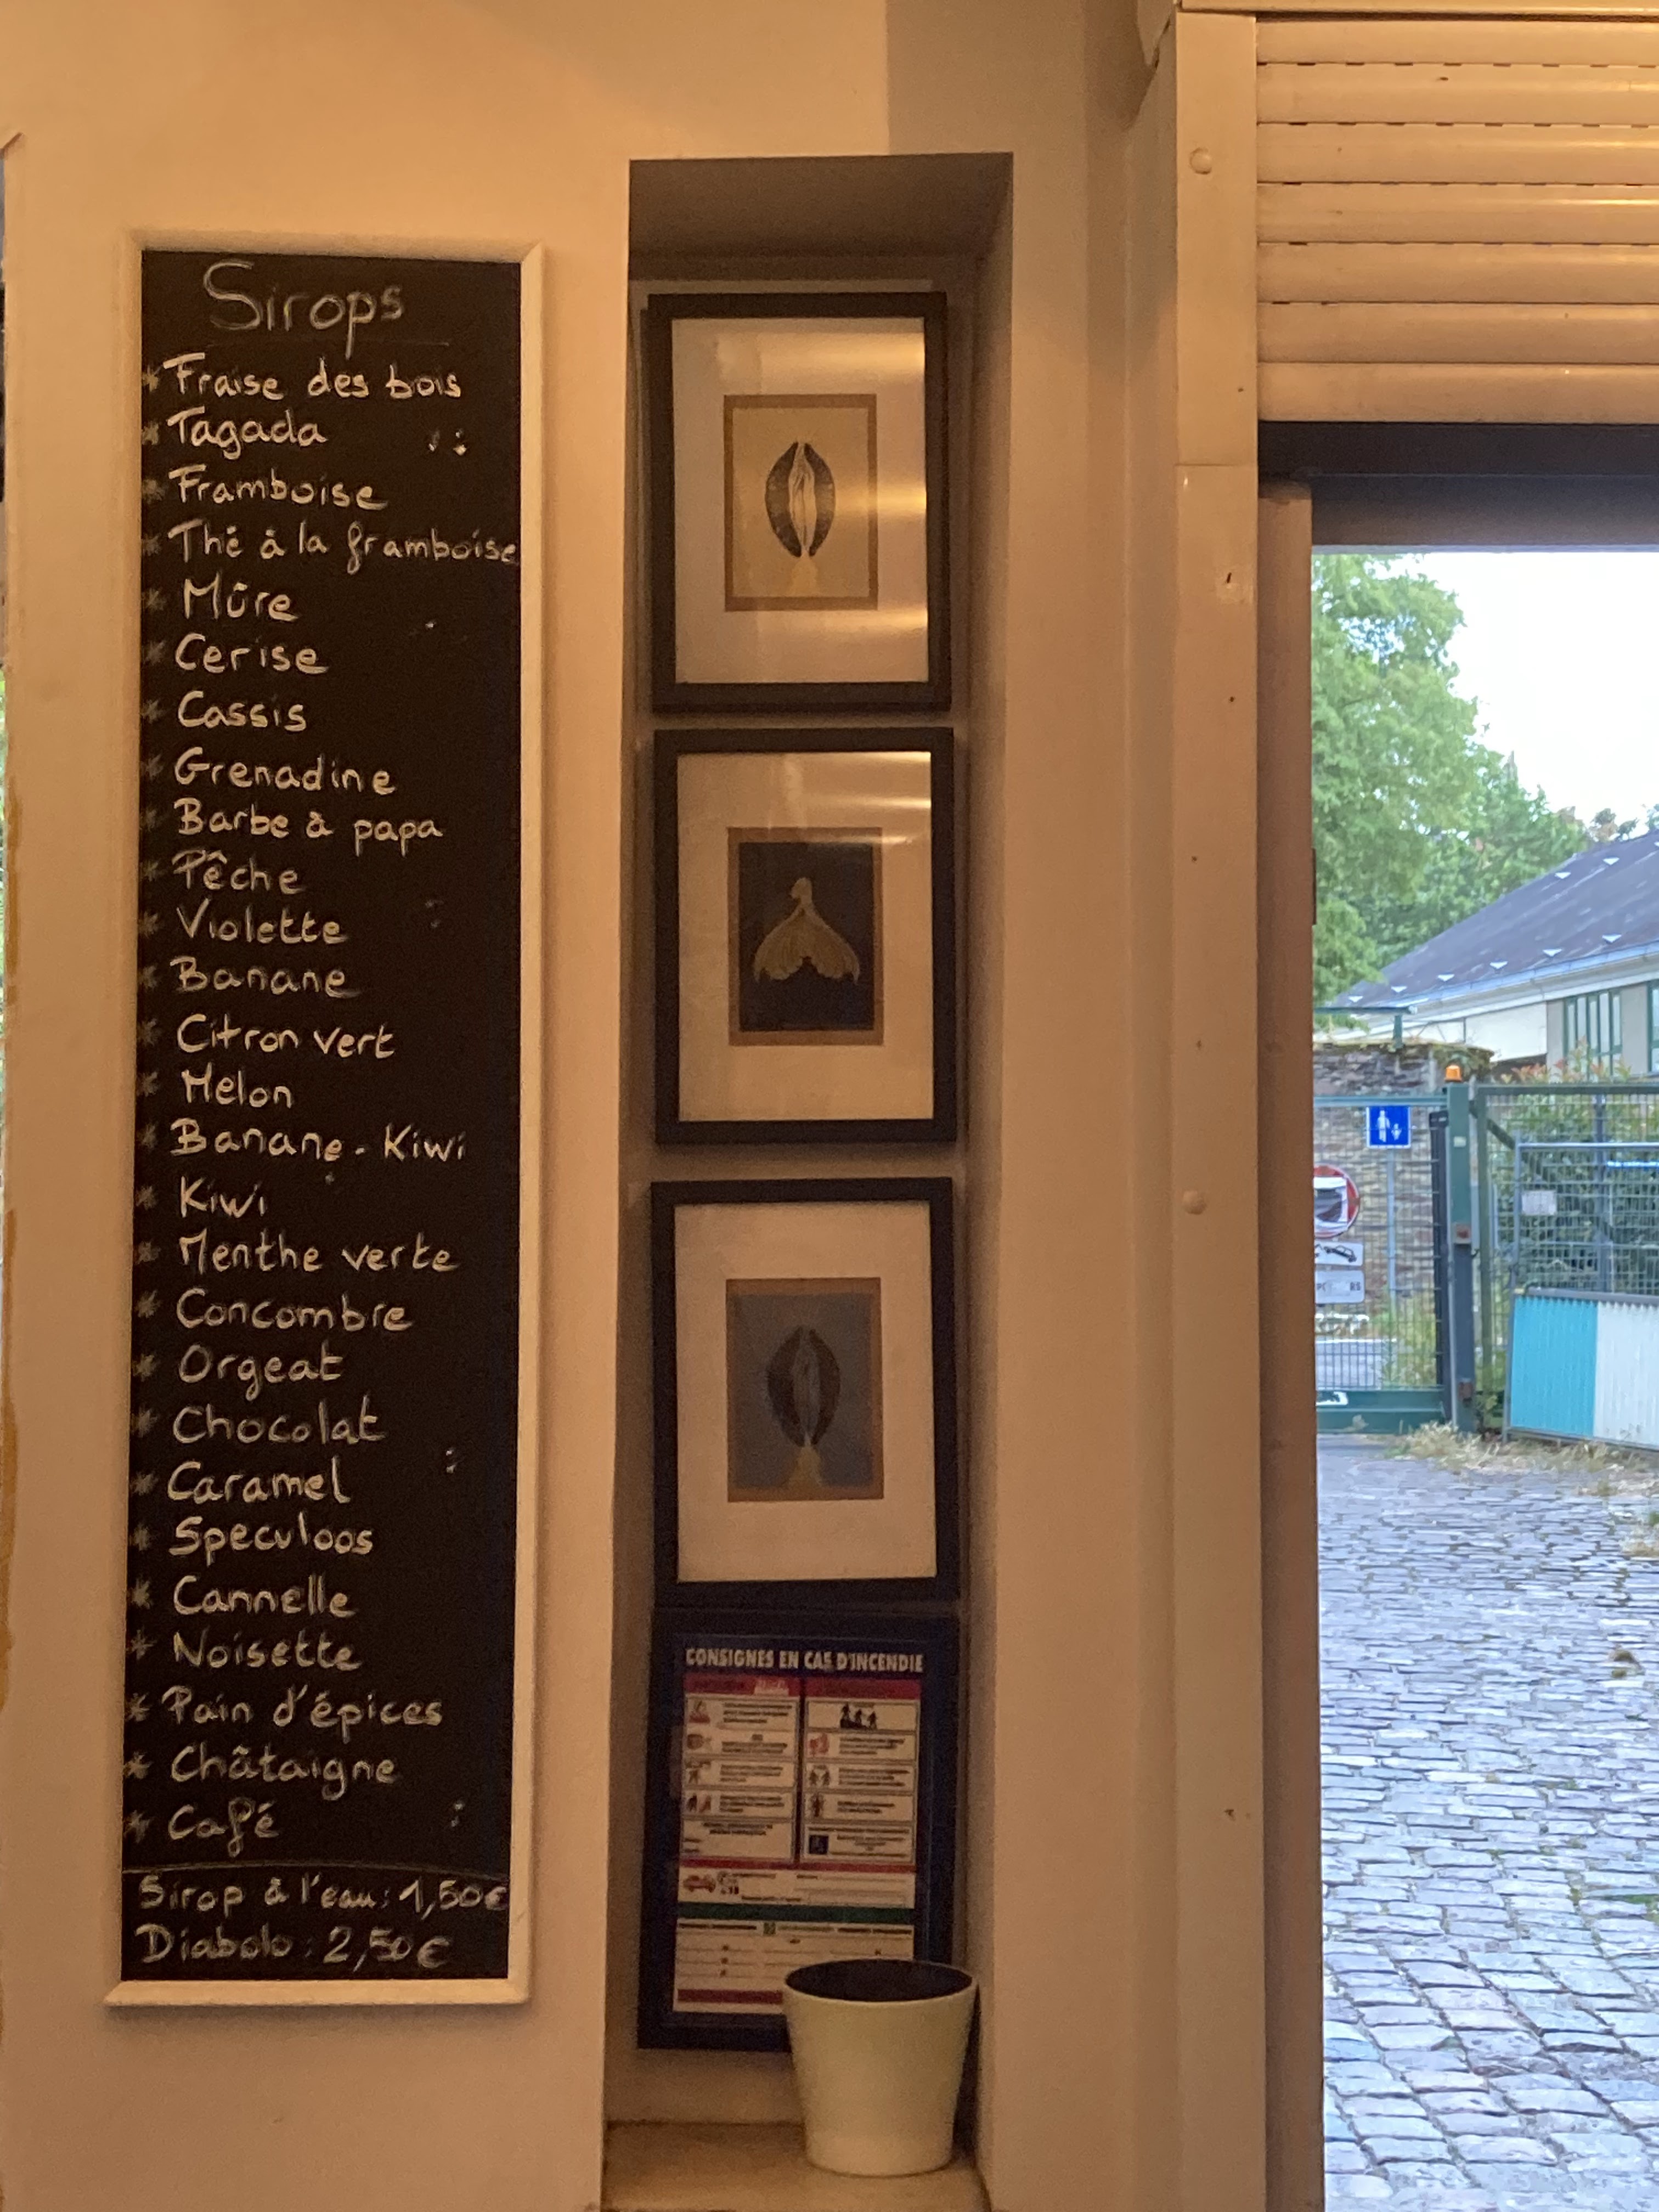 Sirops
* Fraise des bois
* Tagada
* Framboise
* Thé à la framboise
* Mûre
* Cerise
* Cassis
* Grenadine
* Barbe à papa
* Pêche
* Violette
* Banane
* Citron vert
* Melon
* Banane - Kiwi
* Kiwi
* Menthe verte
* Concombre
* Orgeat
* Chocolat
* Caramel
* Speculoos
* Cannelle
* Noisette
* Pain d'épices
* Châtaigne
* Café
Sirop à l'eau : 1,50€
Diabolo : 2,50€
CONSIGNES EN CAS D'INCENDIE